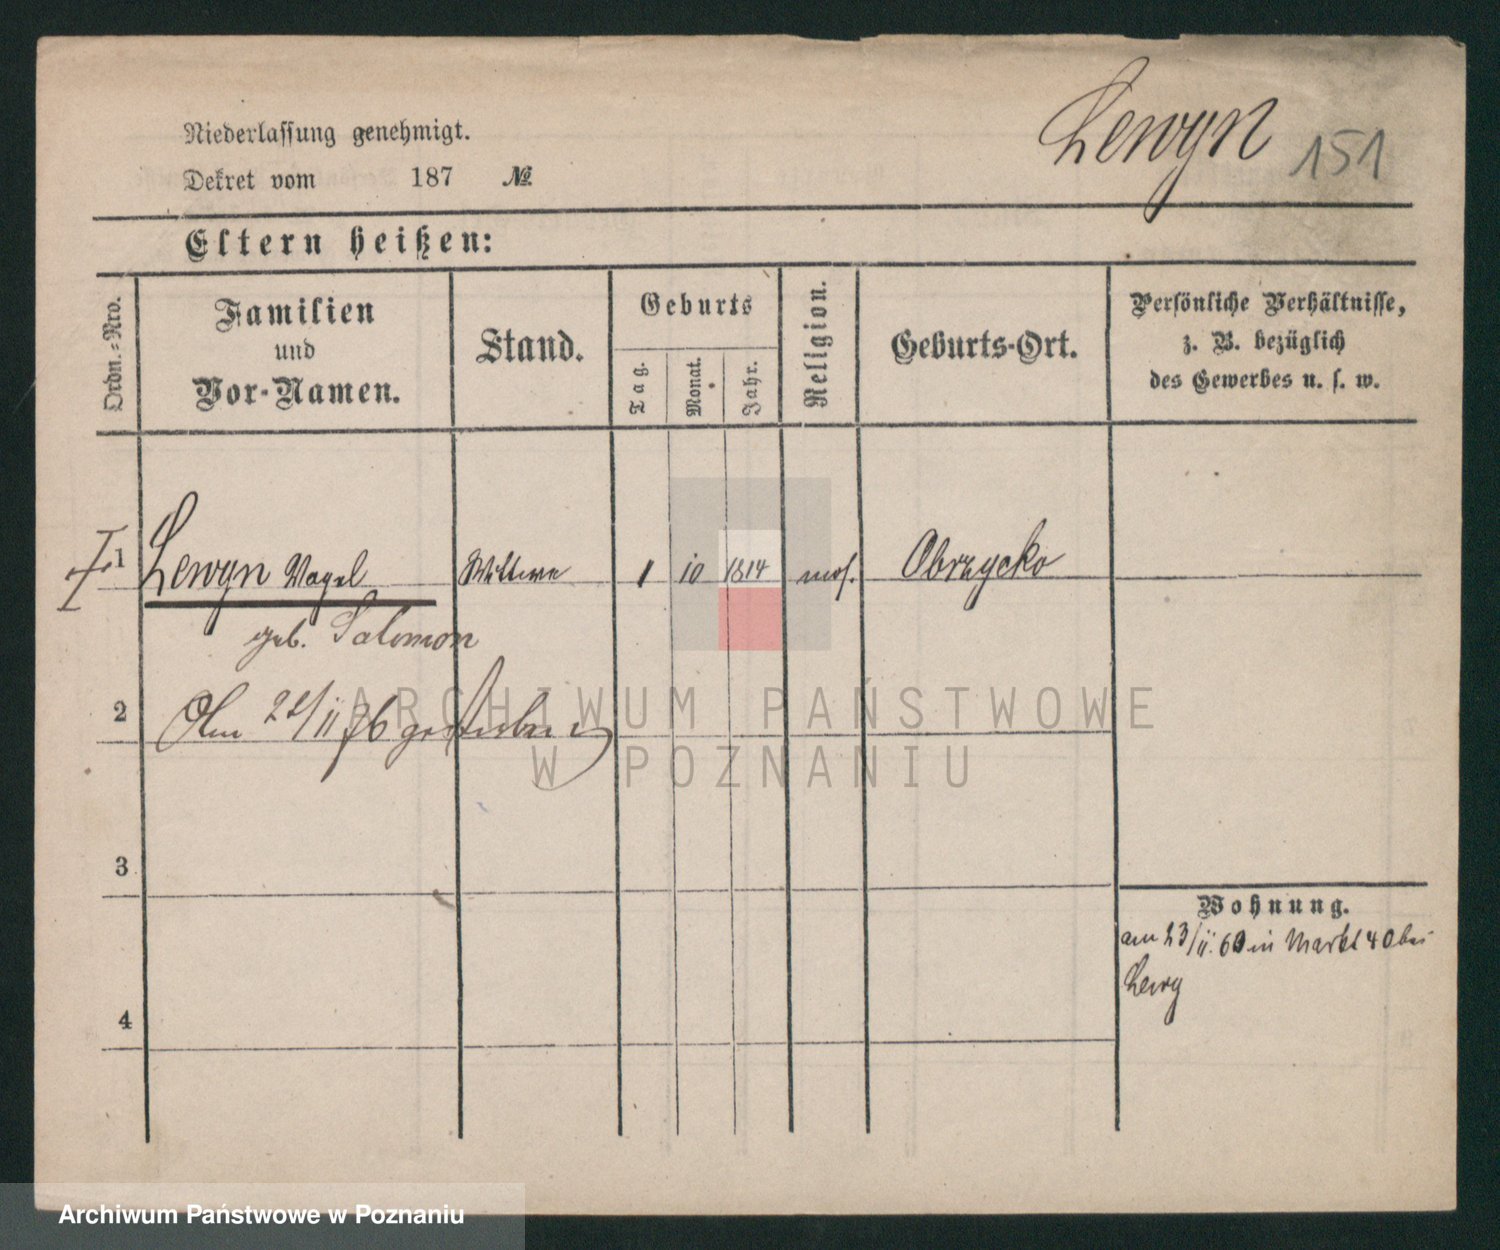 Lewyn 151
Niederlassung genehmigt.
Dekret vom 187 №
Eltern heißen:
Ordn.-Nro.
Familien
und
Vor-Namen.
Stand.
Geburts
Tag.
Monat.
Jahr.
Religion.
Geburts-Ort.
Persönliche Verhältnisse,
z. B. bezüglich
des Gewerbes u. s. w.
1 Lewyn Vogel Wittwe 1 10 1814 mos. Obrzycko
geb. Salomon
2 Am 22/11 76 gestorben
3
4
Wohnung.
am 23/11. 60 in Markt 40 bei
Lewy
ARCHIWUM PAŃSTWOWE
W POZNANIU
Archiwum Państwowe w Poznaniu